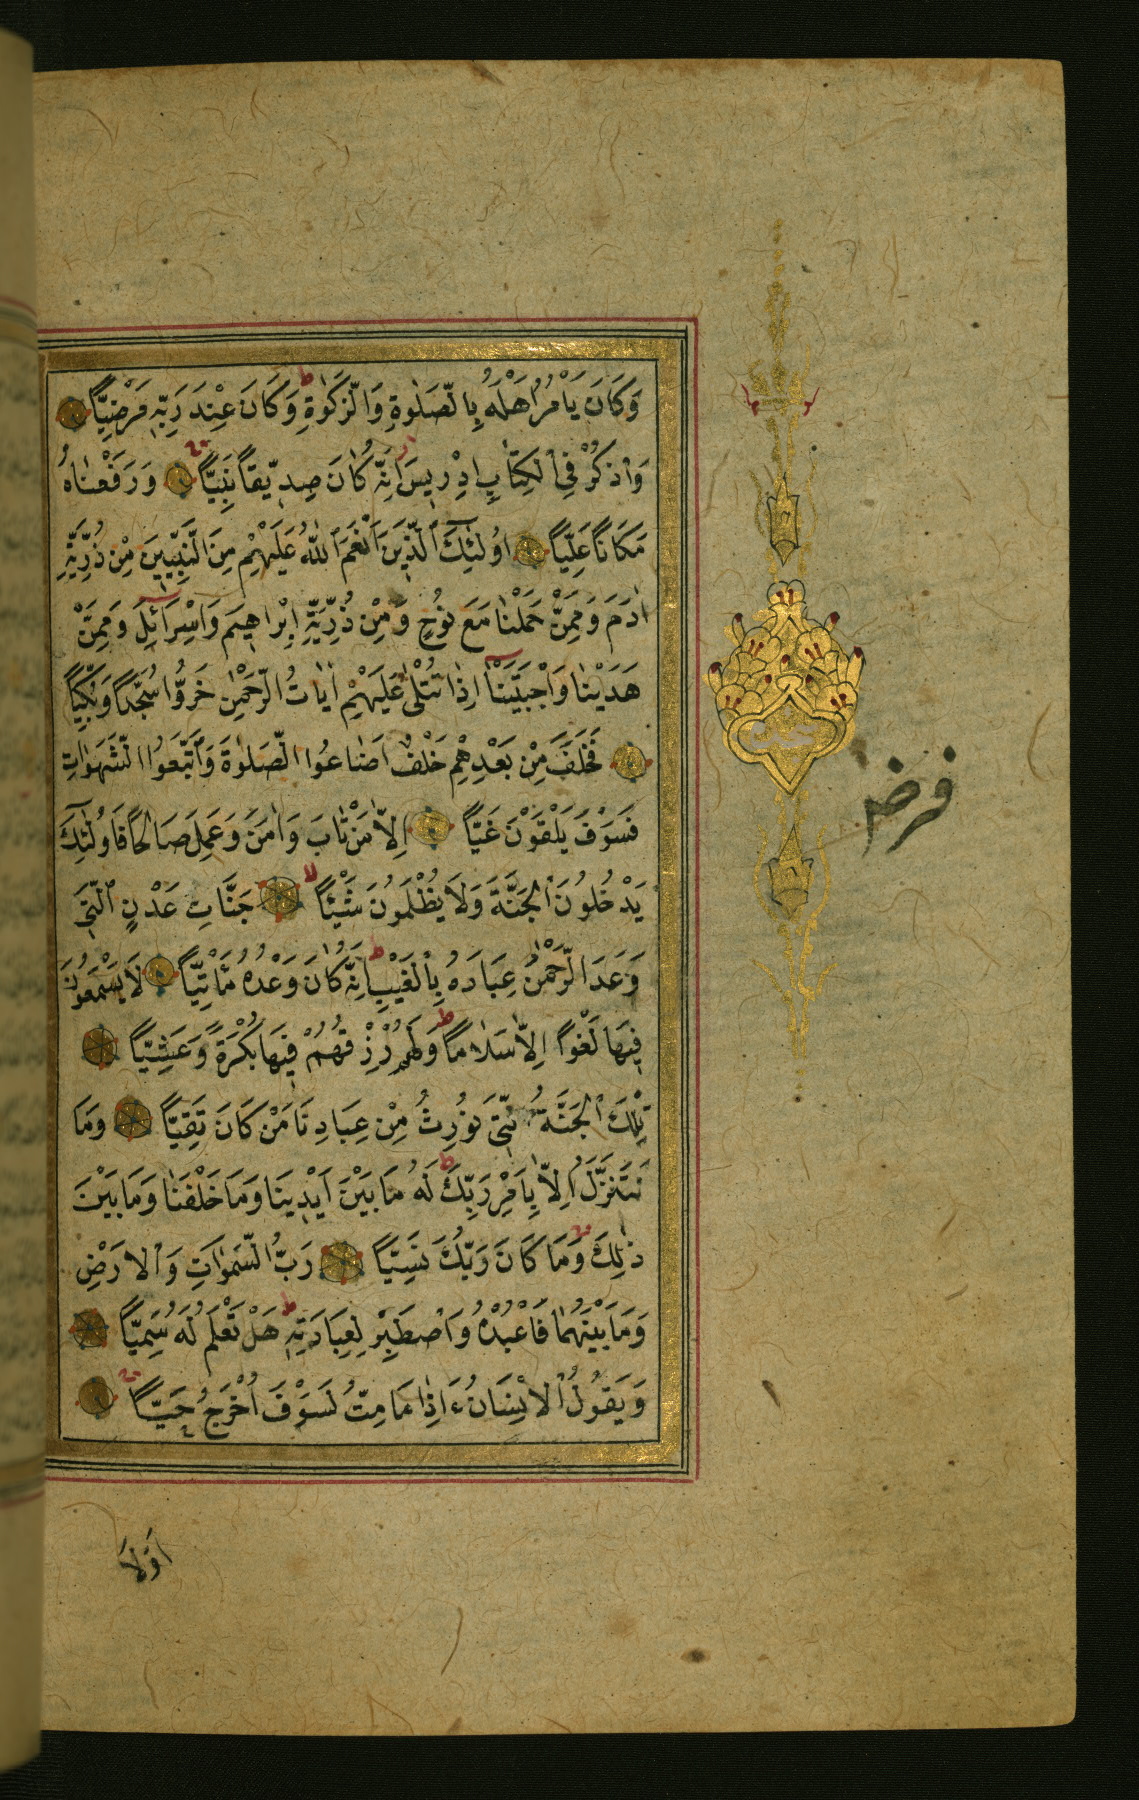 وَكَانَ يَاْمُرُ اَهْلَهُ بِالصَّلٰوةِ وَالزَّكٰوةِ ط وَكَانَ عِنْدَ رَبِّهٖ مَرْضِيًّا
وَاذْكُرْ فِى الْكِتَابِ اِدْرِيسَ اِنَّهُ كَانَ صِدِّيقًا نَبِيًّا وَرَفَعْنَاهُ
مَكَانًا عَلِيًّا اُولٰئِكَ الَّذِينَ اَنْعَمَ اللّٰهُ عَلَيْهِمْ مِنَ النَّبِيّٖنَ مِنْ ذُرِّيَّةِ
اٰدَمَ وَمِمَّنْ حَمَلْنَا مَعَ نُوحٍ وَمِنْ ذُرِّيَّةِ اِبْرٰاهِيمَ وَاِسْرَائِلَ وَمِمَّنْ
هَدَيْنَا وَاجْتَبَيْنَا اِذَا تُتْلٰى عَلَيْهِمْ اٰيَاتُ الرَّحْمٰنِ خَرُّوا سُجَّدًا وَبُكِيًّا
فَخَلَفَ مِنْ بَعْدِهِمْ خَلْفٌ اَضَاعُوا الصَّلٰوةَ وَاتَّبَعُوا الشَّهَوَاتِ
فَسَوْفَ يَلْقَوْنَ غَيًّا اِلَّا مَنْ تَابَ وَاٰمَنَ وَعَمِلَ صَالِحًا فَاُولٰئِكَ
يَدْخُلُونَ الْجَنَّةَ وَلَا يُظْلَمُونَ شَيْئًا لا جَنَّاتِ عَدْنٍ الَّتِى
وَعَدَ الرَّحْمٰنُ عِبَادَهُ بِالْغَيْبِ ط اِنَّهُ كَانَ وَعْدُهُ مَاْتِيًّا لَا يَسْمَعُونَ
فِيهَا لَغْوًا اِلَّا سَلَامًا ط وَلَهُمْ رِزْقُهُمْ فِيهَا بُكْرَةً وَعَشِيًّا
تِلْكَ الْجَنَّةُ الَّتِى نُورِثُ مِنْ عِبَادِنَا مَنْ كَانَ تَقِيًّا وَمَا
نَتَنَزَّلُ اِلَّا بِاَمْرِ رَبِّكَ ط لَهُ مَا بَيْنَ اَيْدِينَا وَمَا خَلْفَنَا وَمَا بَيْنَ
ذٰلِكَ وَمَا كَانَ رَبُّكَ نَسِيًّا رَبُّ السَّمٰوَاتِ وَالْارَضِ
وَمَا بَيْنَهُمَا فَاعْبُدْهُ وَاصْطَبِرْ لِعِبَادَتِهِ ط هَلْ تَعْلَمُ لَهُ سَمِيًّا
وَيَقُولُ الْاِنْسَانُ ءَاِذَا مَا مِتُّ لَسَوْفَ اُخْرَجُ حَيًّا
اَوَلَا